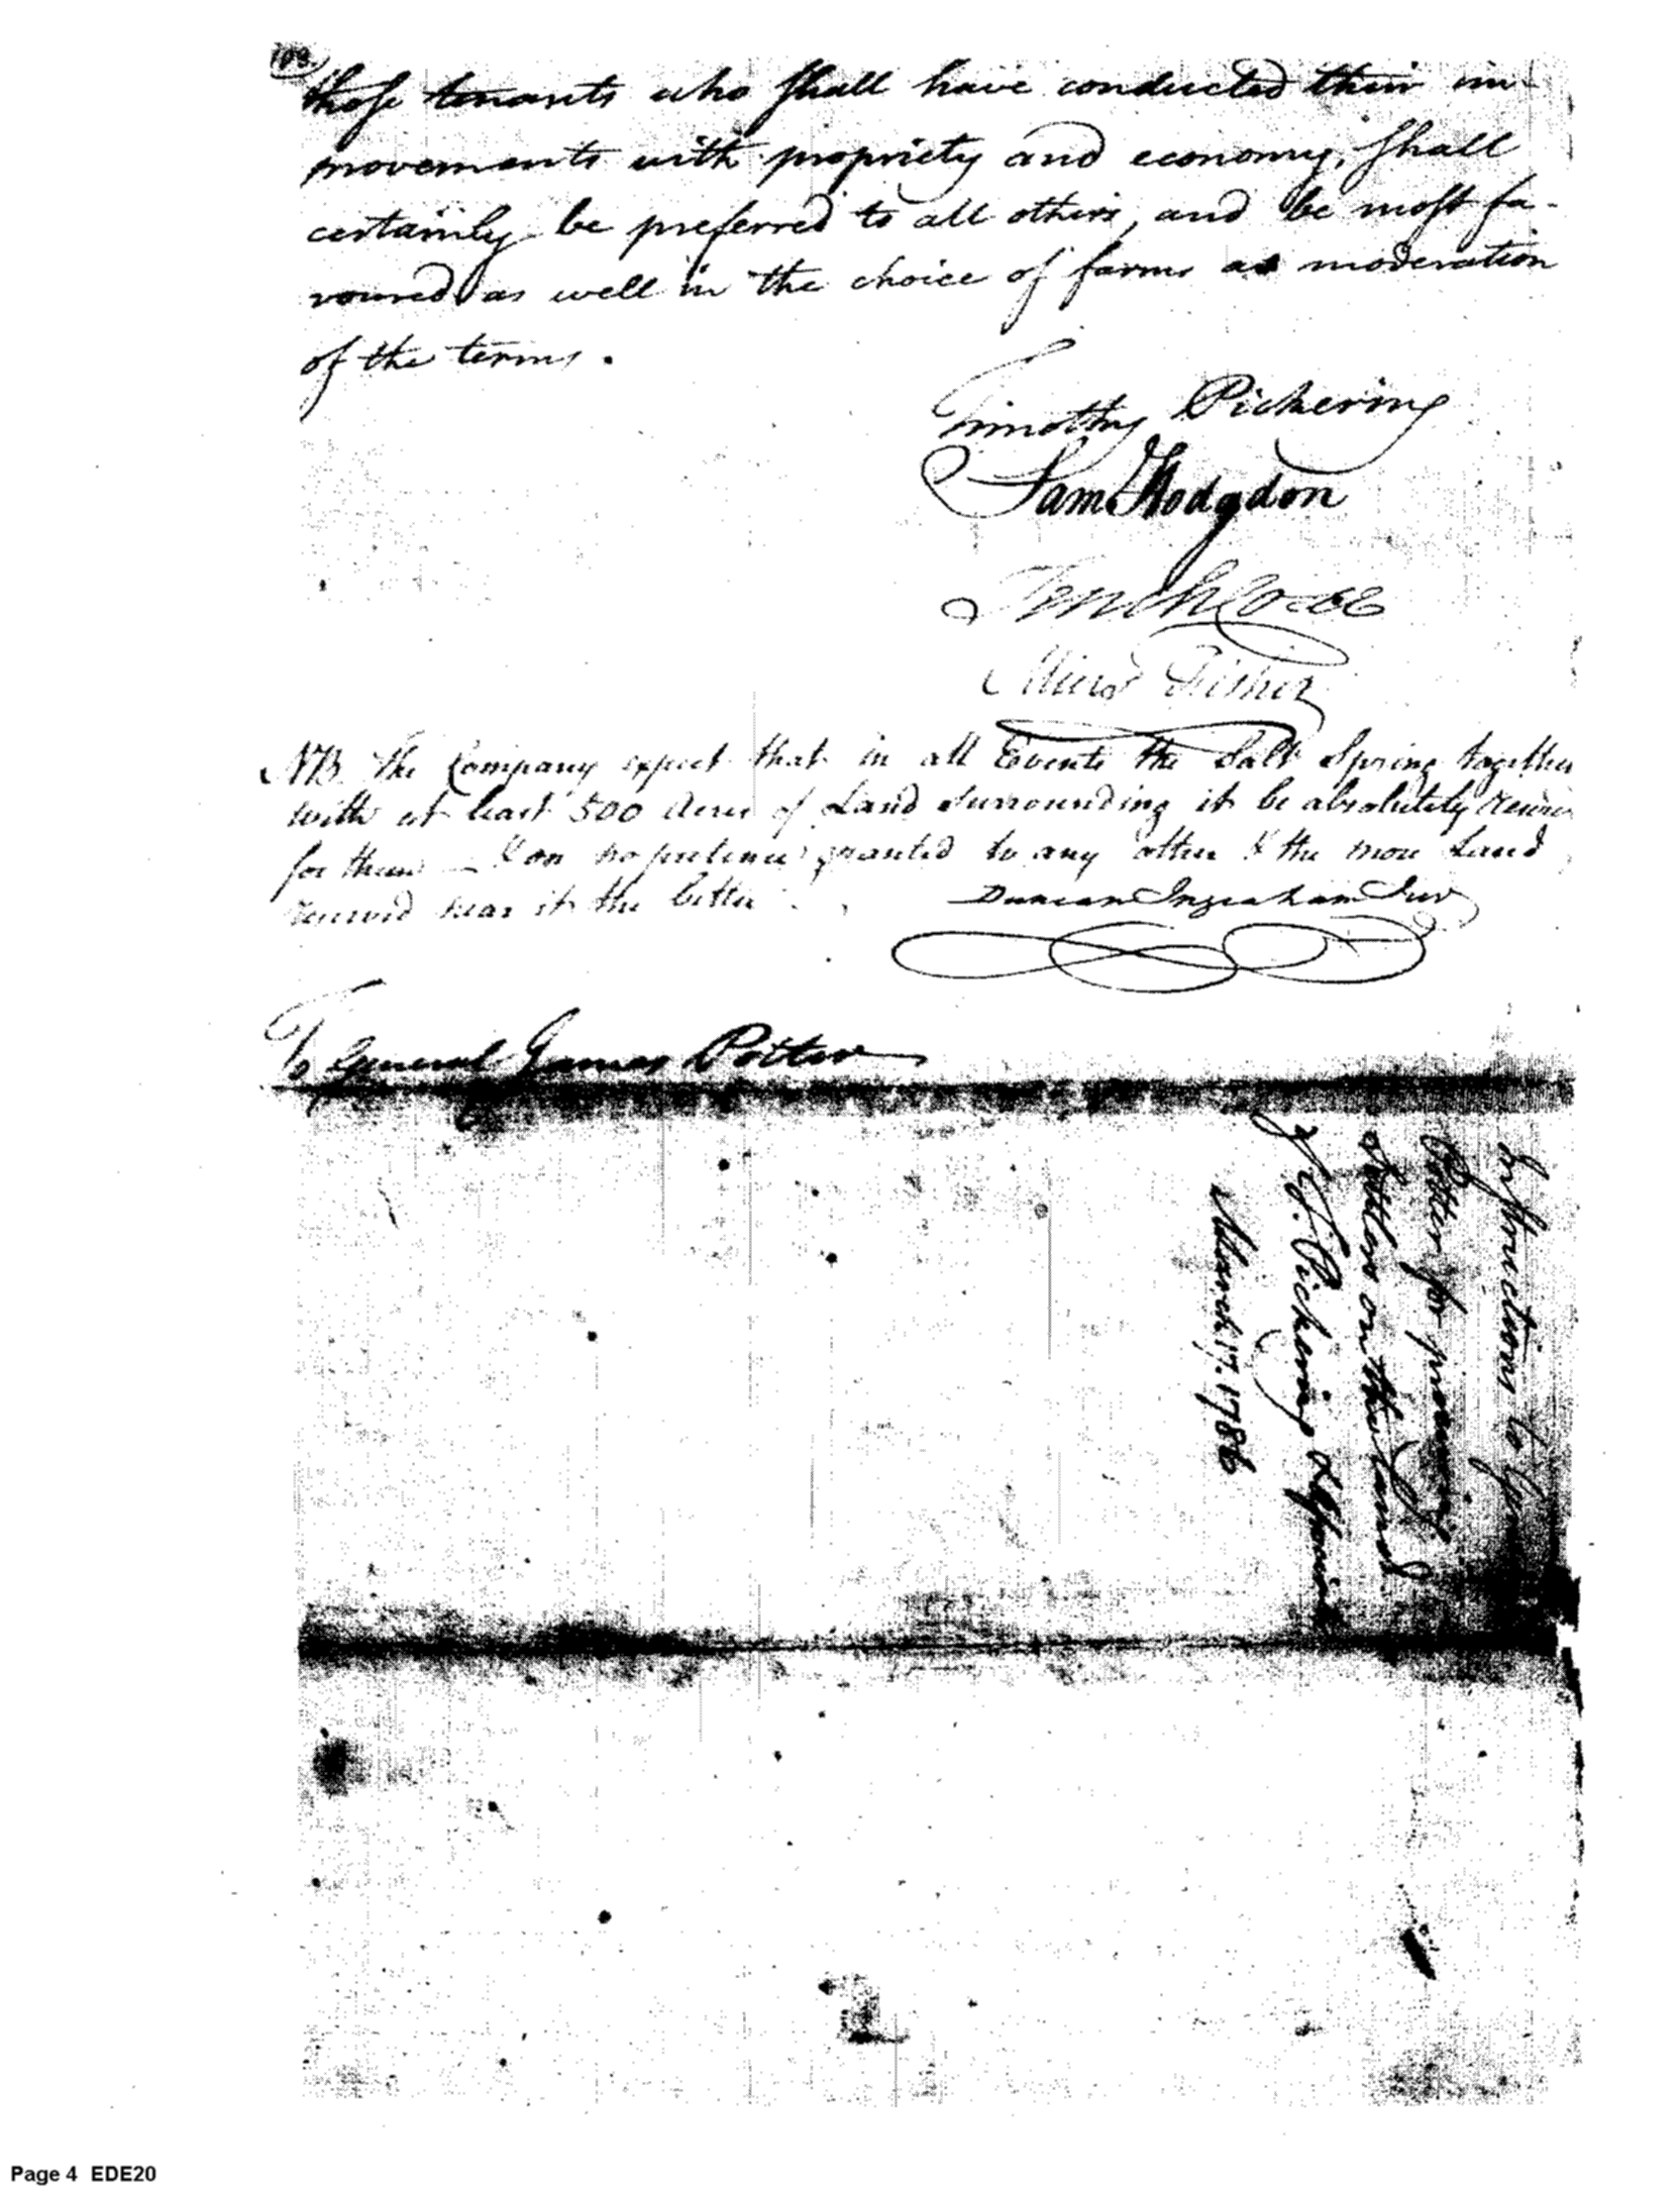 108.
those tenants who shall have conducted their im-
movements with propriety and economy, shall
certainly be preferred to all others, and be most fa-
voured as well in the choice of farms as moderation
of the terms.
Timothy Pickering
Sam Hodgdon
Tench Coxe
Miers Fisher
NB. The Company expect that in all Events the Salt Spring together
with at least 500 Acres of Land surrounding it be absolutely
for them — & on no pretence granted to any other & the more Land
reserved near it the better.
Duncan Ingraham Junr
To General James Potter
Instructions to
Potter for
Settlers on the Lands
T. Pickering &
March 17. 1786
Page 4 EDE20